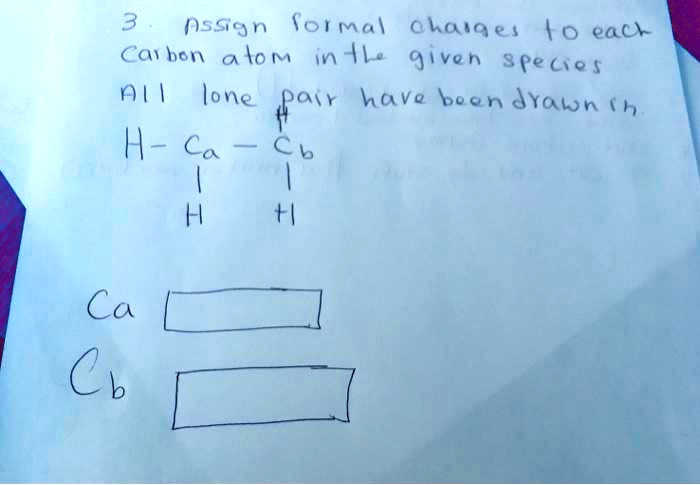 3. Assign formal charges to each
Carbon atom in the given species
All lone pair have been drawn in.
H
H- Ca - Cb
H H
Ca
Cb